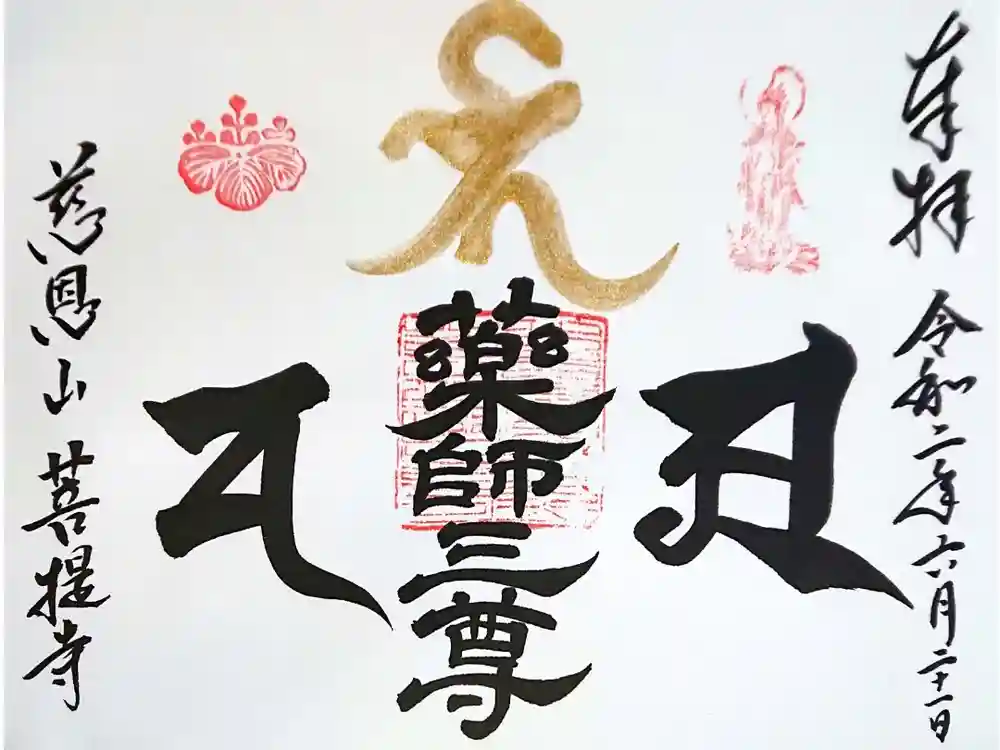 奉拝 令和二年六月二十一日
薬師三尊
慈恩山 菩提寺